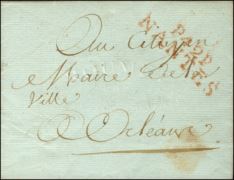 P.P.P.P.
NANTES
Au Citoyen
Maire de la
Ville
Orléans